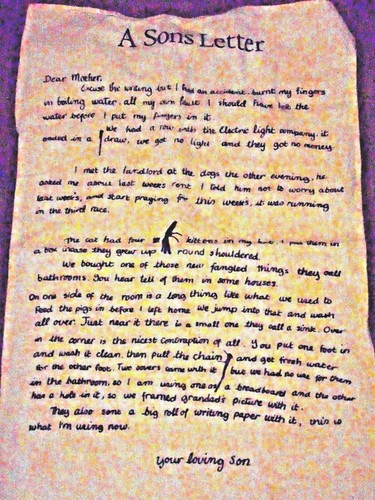 A Sons Letter
Dear Mother.
Excuse the writing but I had an accident. burnt my fingers
in boiling water. all my own fault I should have felt the
water before I put my fingers in it.
We had a row with the Electric light company. it
ended in a draw, we got no light and they got no money.
I met the landlord at the dogs the other evening, he
asked me about last weeks rent I told him not to worry about
last weeks, and start praying for this weeks, it was running
in the third race.
The cat had four kittens in my hat I put them in
a box incase they grew up round shouldered.
We bought one of those new fangled things they call
bathrooms. You hear tell of them in some houses.
On one side of the room is a long thing like what we used to
feed the pigs in before I left home we jump into that and wash
all over. Just near it there is a small one they call a sink. Over
in the corner is the nicest contraption of all. You put one foot in
and wash it clean. then pull the chain and get fresh water
for the other foot. Two covers came with it but we had no use for them
in the bathroom, so I am using one as a breadboard and the other
has a hole in it, so we framed grandad's picture with it.
They also sent a big roll of writing paper with it, this is
what I'm using now.
Your loving Son